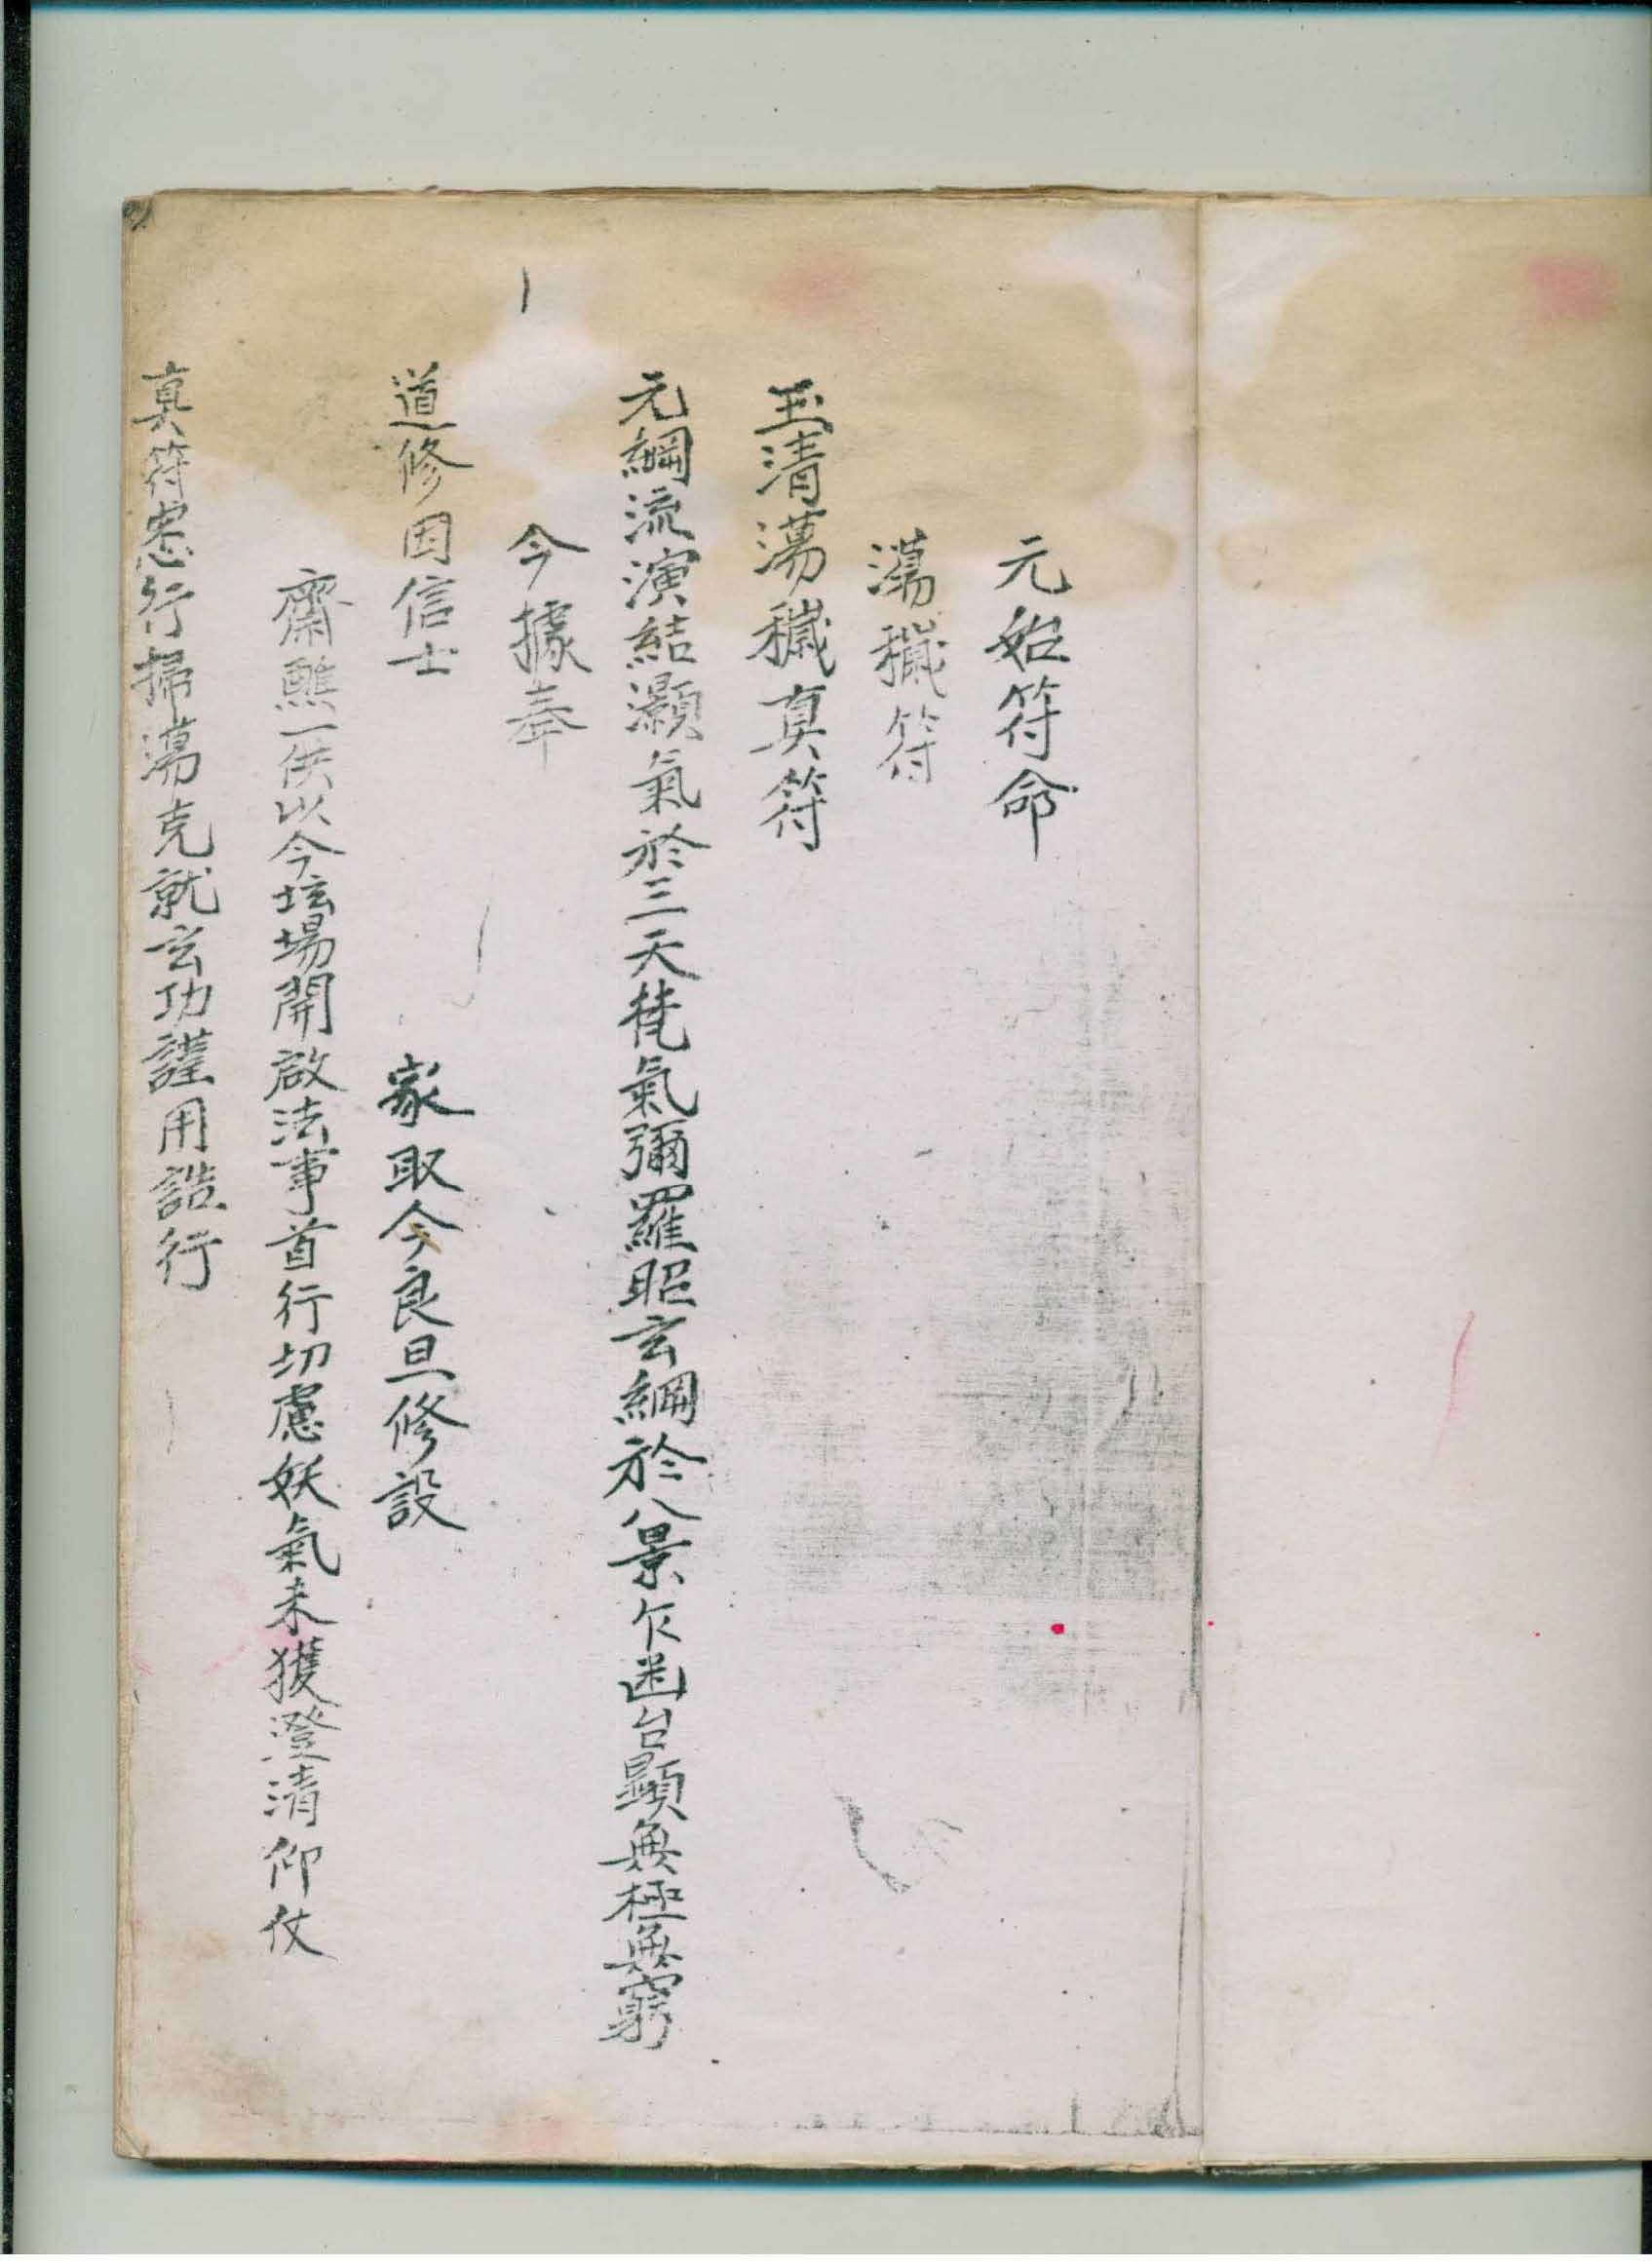 元始符命
蕩穢符
玉清蕩穢真符
元綱流演結灝氣於三天梵氣彌羅昭玄綱於八景乍迷台顯無極無窮
今據奉
道修因信士
家取今良旦修設
齋醮一供以今坛場開啟法事首行切慮妖氣未獲澄清仰仗
真符宻行掃蕩克就玄功謹用誥行